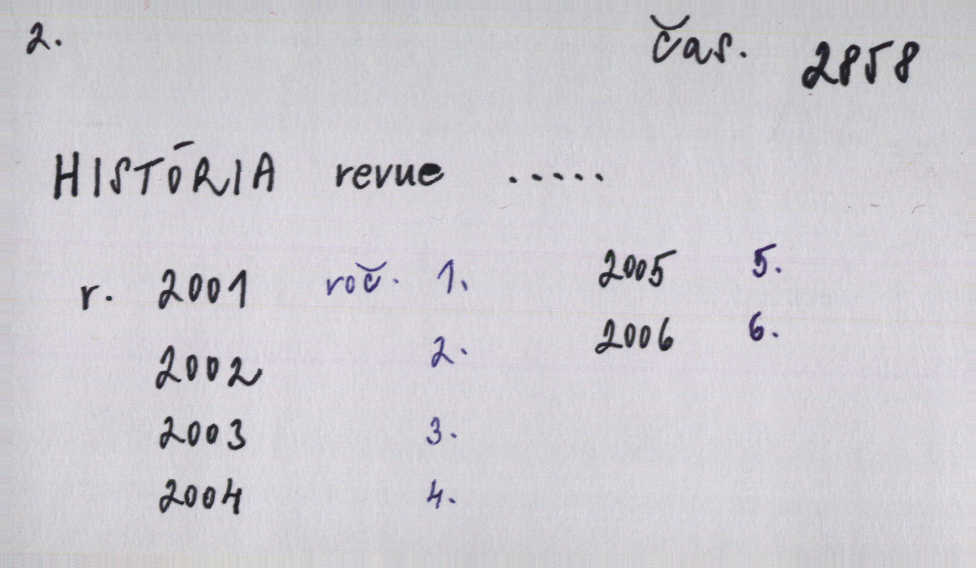 2. čas. 2858
HISTÓRIA revue .....
r. 2001 roč. 1. 2005 5.
2002 2. 2006 6.
2003 3.
2004 4.